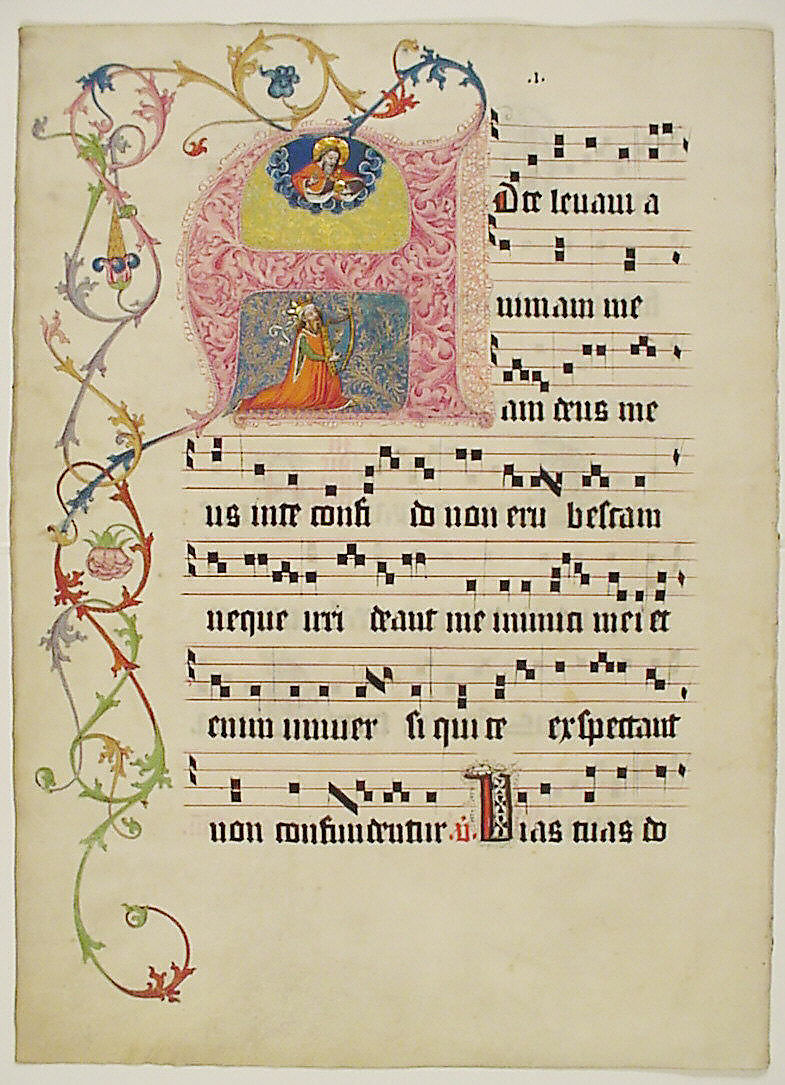 .1.
Dte levavi a
nimam me
am deus me
us inte confi do non eru bescam
neque irri deant me inimici mei et
enim univer si qui te exspectant
non confundentur .v. Vias tuas do